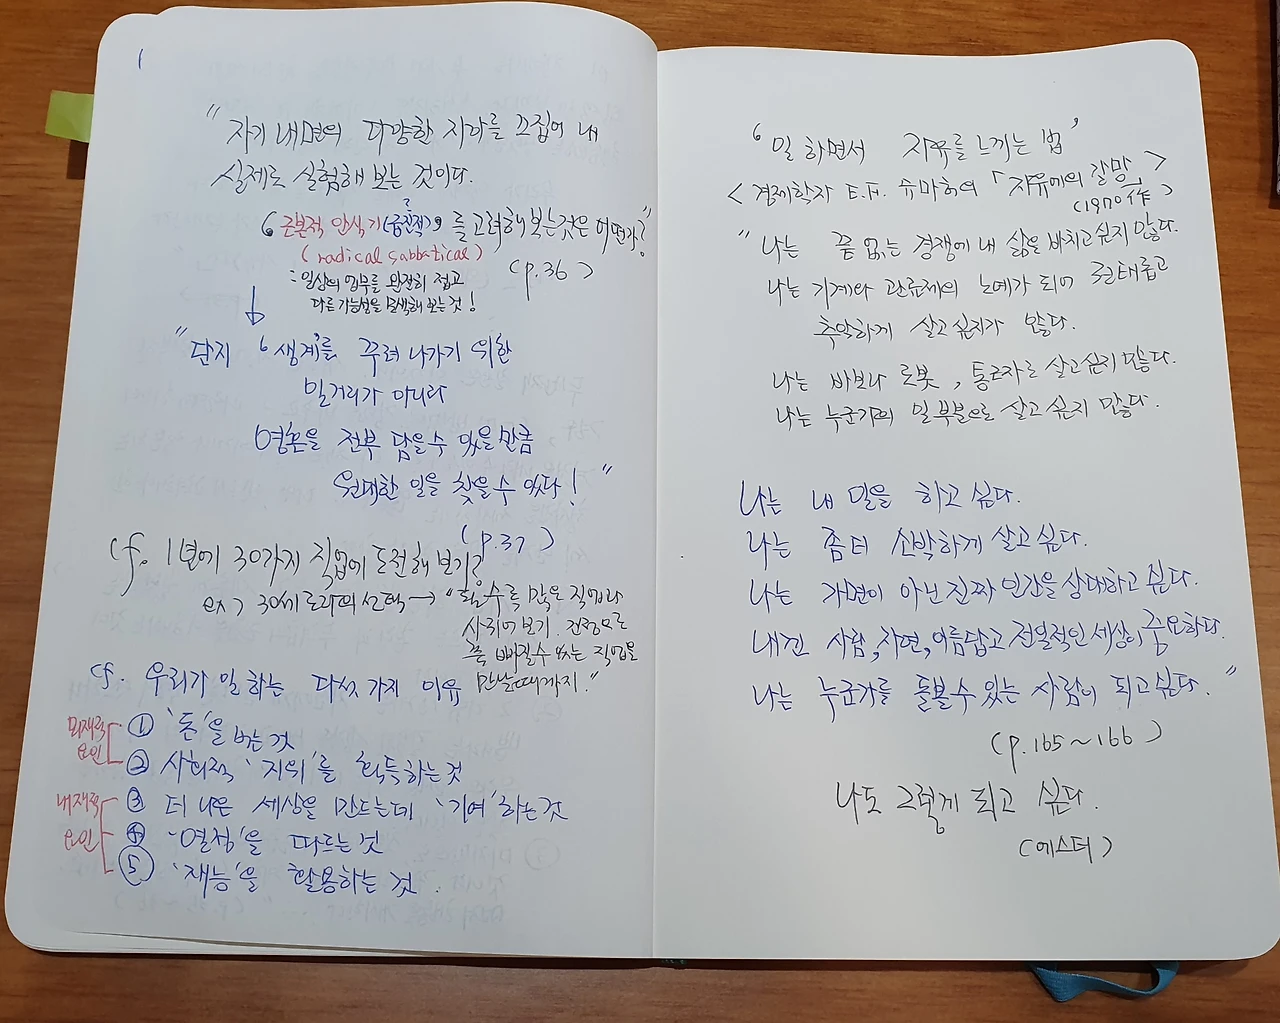 1
" 자기 내면의 다양한 자아를 끄집어 내
실제로 실험해 보는 것이다.
' 근본적 안식기(급진적?)' 를 고려해 보는것은 어떤가?"
(radical sabbatical) (p.36)
: 일상의 업무를 완전히 접고
다른 가능성을 모색해 보는 것!
↓
" 단지 '생계'를 꾸려 나가기 위한
일거리가 아니라
영혼을 전부 담을수 있을만큼
원대한 일을 찾을수 있다! "
(p.37)
cf. 1년에 30가지 직업에 도전해 보기?
ex) 30세 로라의 선택 → " 할수록 많은 직업에
사귀어보기. 진정으로
쭉 빠질수 있는 직업을
만날때까지."
cf. 우리가 일하는 다섯가지 이유
외재적 요인
① '돈'을 버는 것
② 사회적 '지위'를 획득하는 것
내재적 요인
③ 더 나은 세상을 만드는데 '기여'하는 것
④ '열정'을 따르는 것
⑤ '재능'을 활용하는 것.
' 일 하면서 자유를 느끼는 법 '
< 경제학자 E.F. 슈마허의 「자유에의 갈망」 >
(1970 作)
" 나는 끝 없는 경쟁에 내 삶을 바치고 싶지 않다.
나는 기계와 관료제의 노예가 되어 권태롭고
추악하게 살고 싶지가 않다.
나는 바보나 로봇, 통근자로 살고 싶지 않다.
나는 누군가의 일부분으로 살고 싶지 않다.
나는 내 일을 하고 싶다.
나는 좀 더 소박하게 살고 싶다.
나는 가면이 아닌 진짜 인간을 상대하고 싶다.
내겐 사람, 자연, 아름답고 전일적인 세상이 중요하다.
나는 누군가를 돌볼수 있는 사람이 되고 싶다. "
(p.165~166)
나도 그렇게 되고 싶다.
(에스더)